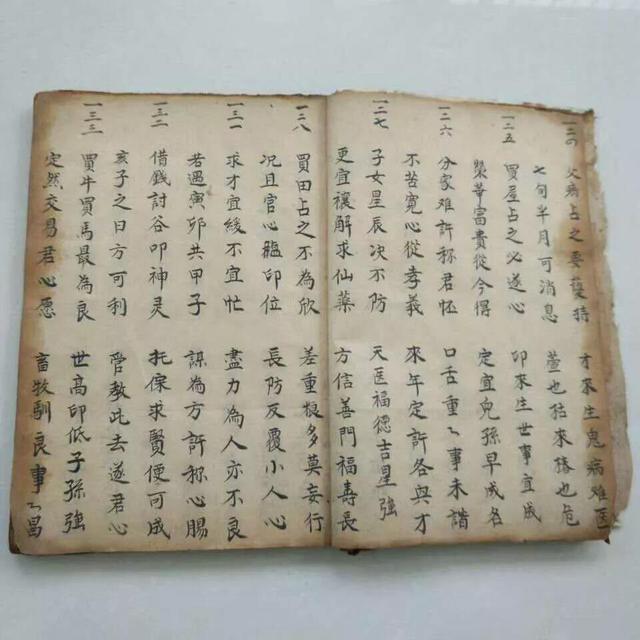 一二四 父病占之要 持 才不生鬼病难医
七旬半月可消息 萱也枯來椿也危
一二五 買屋占之必遂心 卯木生世事宜成
榮華富貴從今得 定宜兒孫早成名
一二六 分家难許称君怀 口舌重々事未諧
不苦寬心從孝義 來年定許各與才
一二七 子女星辰决不防 天医福德吉星強
更宜禳解求仙藥 方信善門福壽長
一二八 買田占之不為欣 差重根多莫妄行
況且官心臨印位 長防反覆小人心
一三一 求才宜緩不宜忙 盡力為人亦不良
若遇寅卯共甲子 謀為方許称心賜
一三二 借錢討谷叩神灵 托保求賢便可成
亥子之日方可利 管教此去遂君心
一三三 買牛買馬最為良 世高印低子孫強
定然交易君心愿 畜牧馴良事々昌